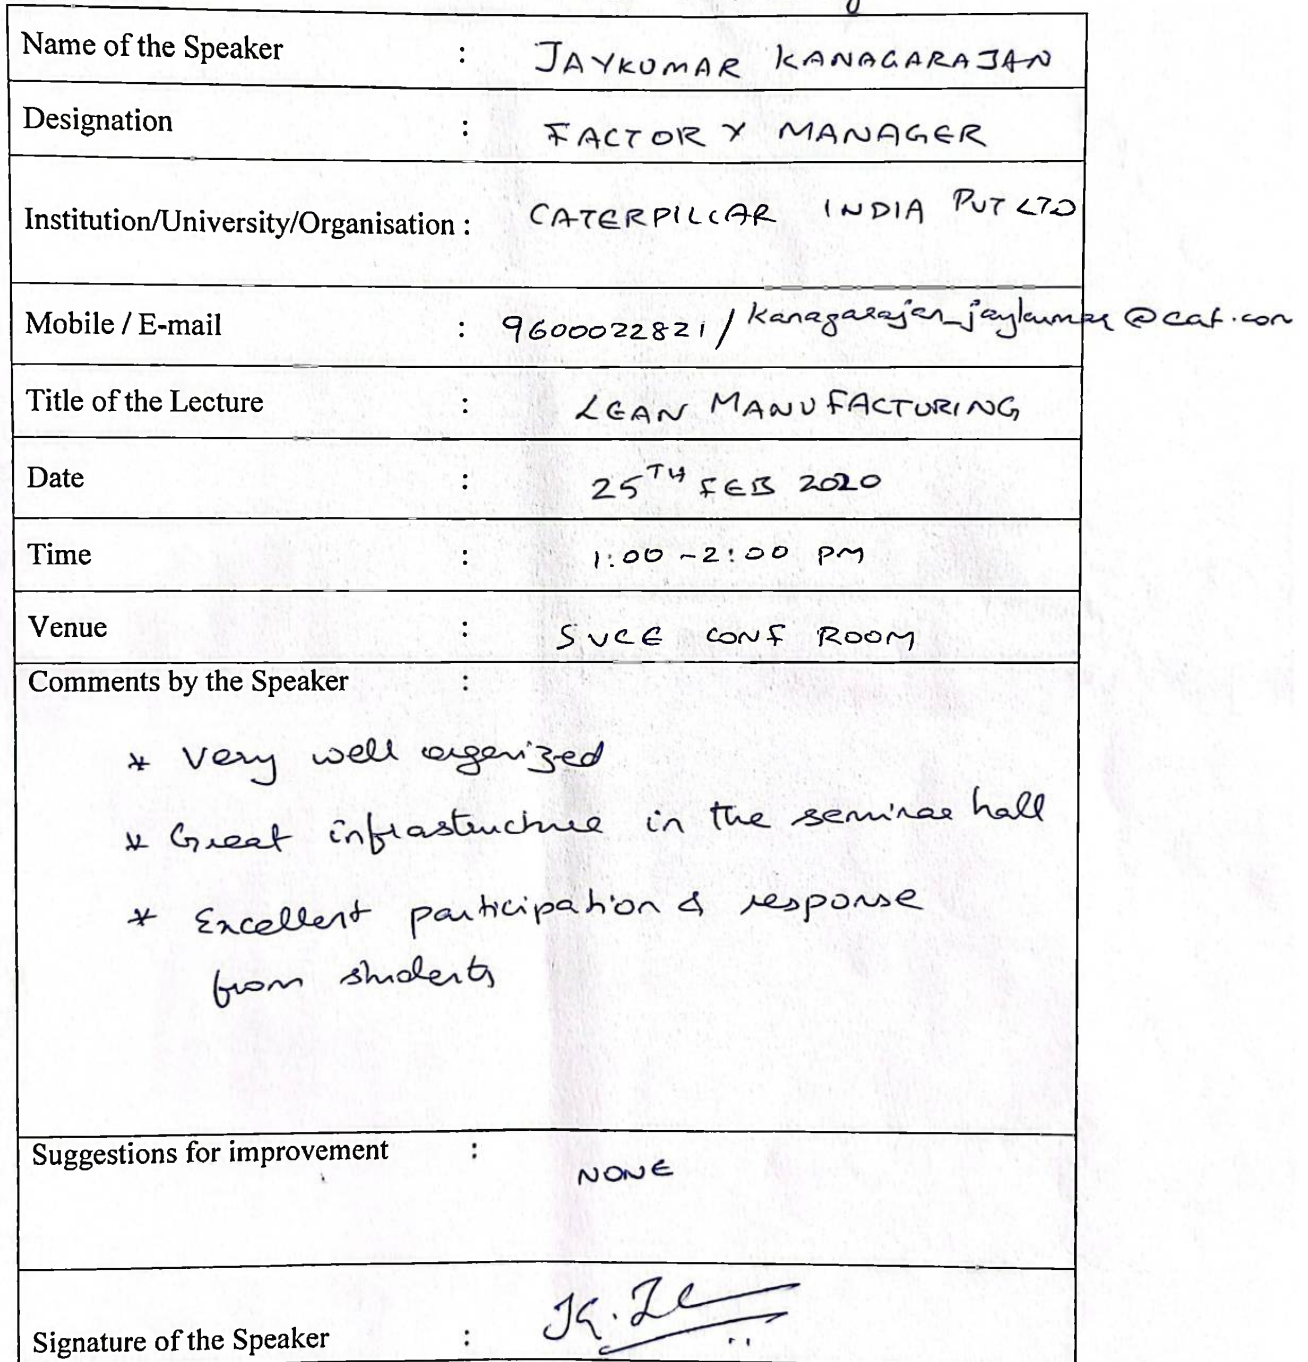 Name of the Speaker : JAYKUMAR KANAGARAJAN
Designation : FACTORY MANAGER
Institution/University/Organisation : CATERPILLAR INDIA PVT LTD
Mobile / E-mail : 9600022821 / kanagarajan_jaykumar@cat.com
Title of the Lecture : LEAN MANUFACTURING
Date : 25TH FEB 2020
Time : 1:00 - 2:00 PM
Venue : SVCE CONF ROOM
Comments by the Speaker :
* Very well organized
* Great infrastructure in the seminar hall
* Excellent participation & response
from students
Suggestions for improvement : NONE
Signature of the Speaker :